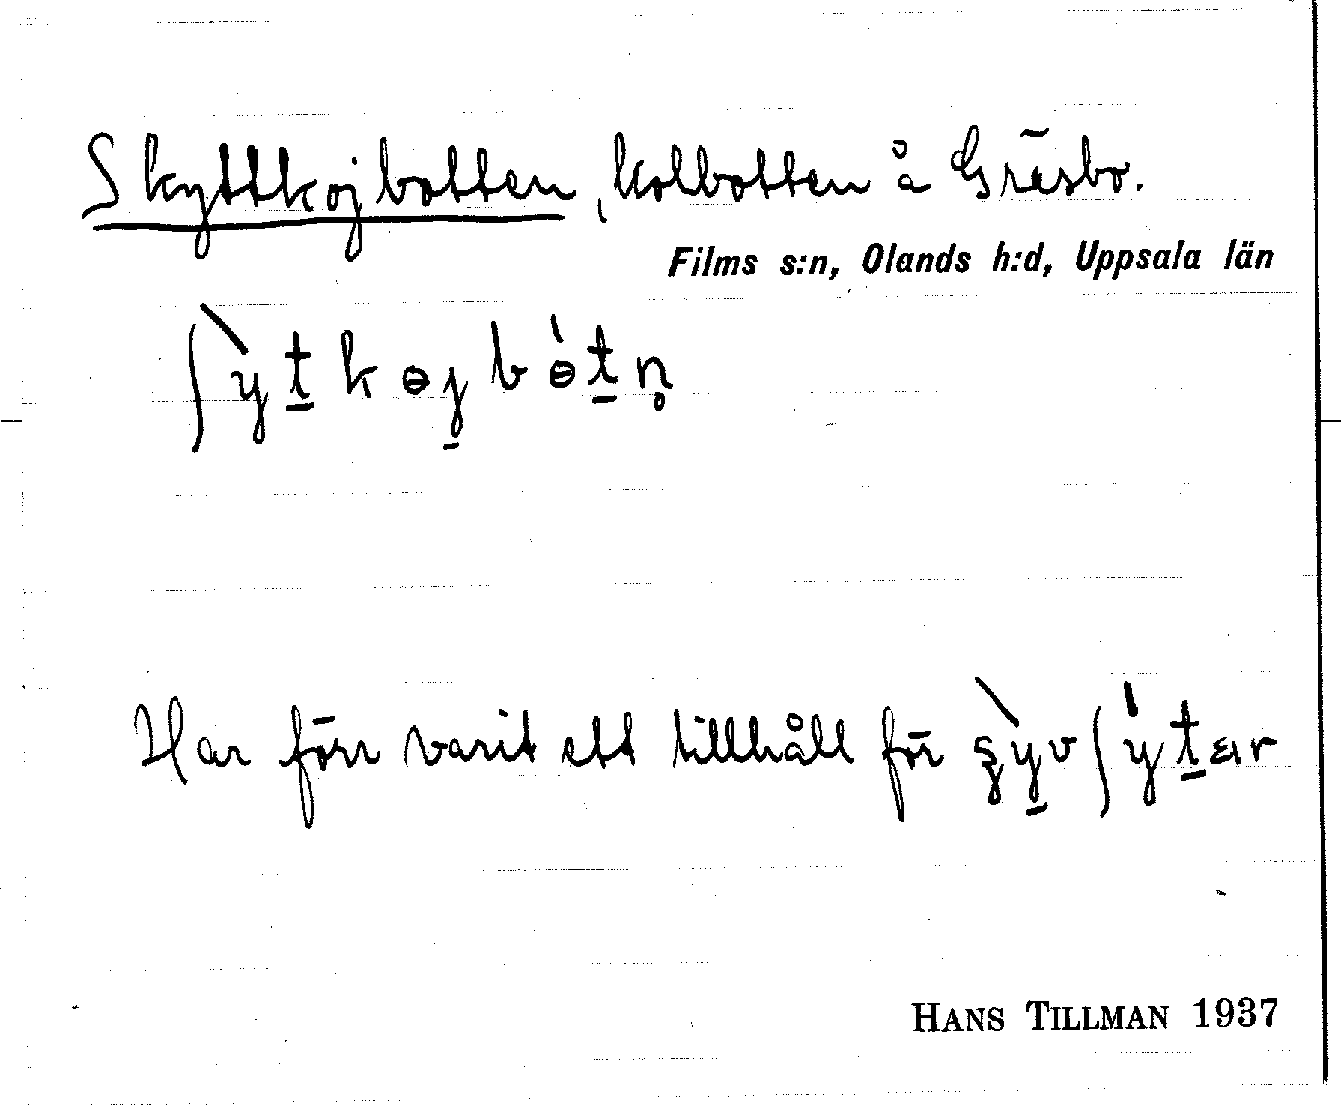 Skyttkojbotten, kolbotten å Gräsbo.
Films s:n, Olands h:d, Uppsala län
ʃỳt̲kɵj̲bɵ́t̲n̥
Har förr varit ett tillhåll för
HANS TILLMAN 1937